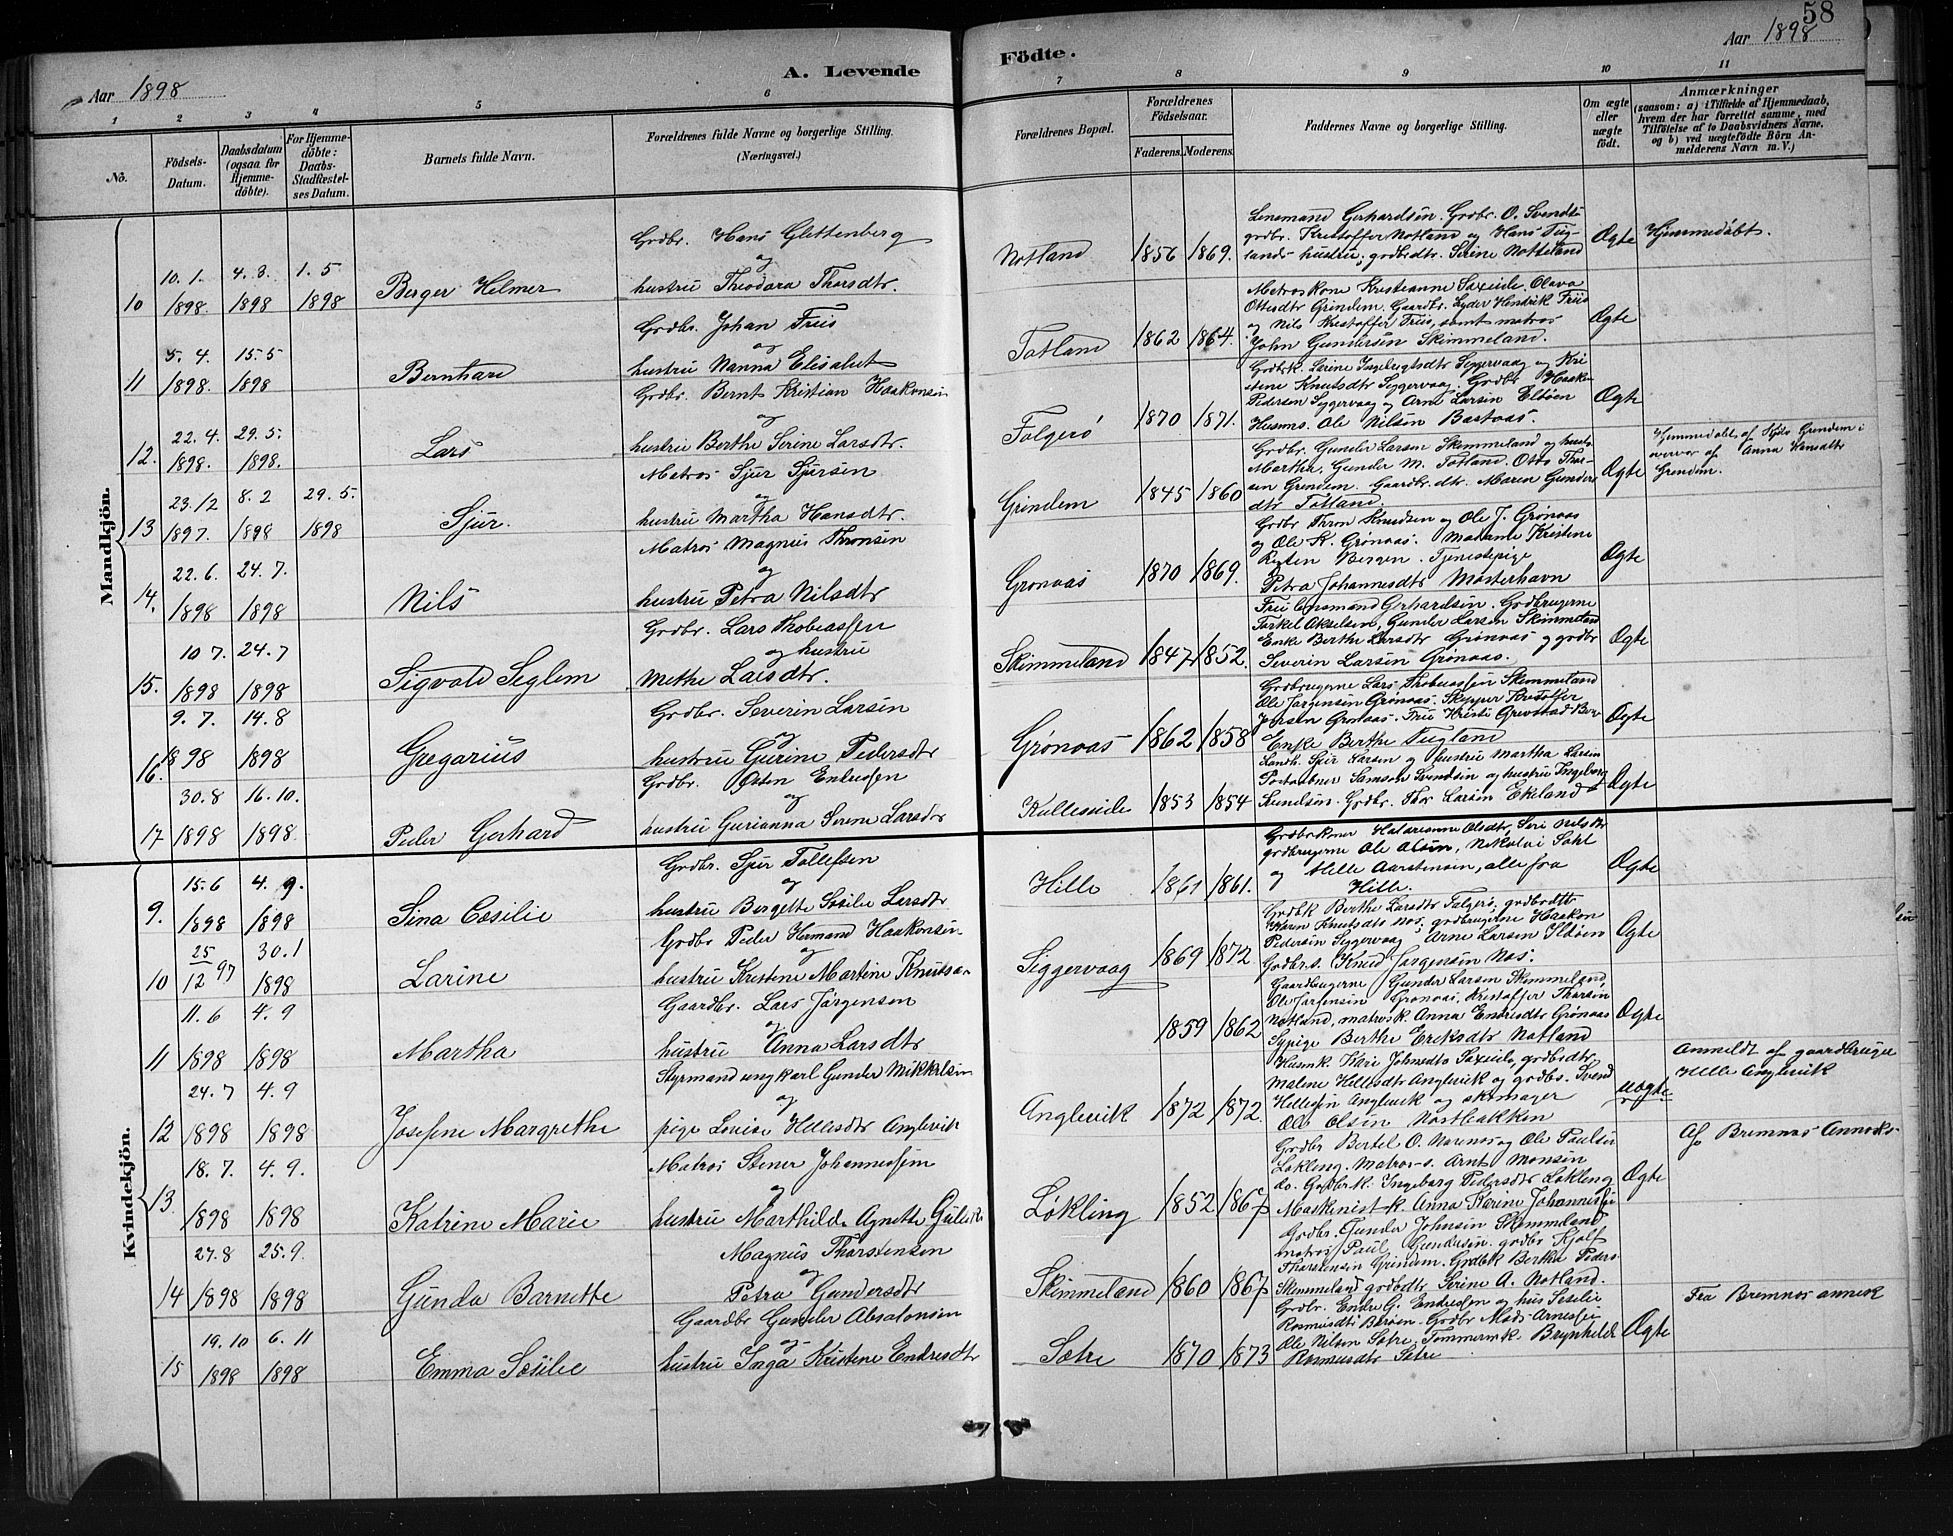 58
Aar 1898
A. Levende
Födte.
Aar 1898
1 2 3 4 5 6 7 8 9 10 11
No.
Födsels-Datum.
Daabsdatum (ogsaa for Hjemme-döbte).
For Hjemme-döbte: Daabs-Stadfæstel-ses Datum.
Barnets fulde Navn.
Forældrenes fulde Navne og borgerlige Stilling. (Næringsvei.)
Forældrenes Bopæl.
Forældrenes Födselsaar.
Faderens. Moderens.
Faddernes Navne og borgerlige Stilling.
Om ægte eller uægte födt.
Anmærkninger
(saasom: a) i Tilfælde af Hjemmedaab,
hvem der har forrettet samme, med
Tilföielse af to Daabsvidners Navne,
og b) ved uægtefödte Börn An-
melderens Navn m. V.)
Mandkjön.
10 10. 1. 1898. 4. 3. 1898 1. 5 1898
Berger Helmer
Grdbr. Hans Glettenberg
og
hustru Theodora Thorsdtr.
Notland 1856 1869.
Lensmand Gerhardsen. Grdbr. O. Svendts
grdbr. Kristoffer Notland og Hans Tug-
lands hustru; grdbrdtr. Serine Notteland
Ægte
Hjemmedöbt.
11 5. 4. 1898. 15. 5 1898
Bernhard
Grdbr. Johan Friis
og
hustru Nanna Elisabet
Totland 1862 1864.
Matroskone Kristianne Saxeide, Olava
Ottesdtr Grindem. Gaardbr. Lyder Hendrik Friis
og Nils Kristoffer Friis, samt matros
John Gundersen Skimmeland.
Ægte
12. 22. 4. 1898. 29. 5. 1898.
Lars
Grdbr. Bernt Kristian Haakonsen
og
hustru Berthe Serine Larsdtr.
Folgerö 1870 1871.
Grdbrk. Larine Ingebrigtsdtr Siggervaag og Kri-
stene Knutsdtr Siggervaag. Grdbr Haakon
Pedersen Siggervaag og Arne Larsen Eltöen
Husms. Ole Nilsen Bastvaas.
Ægte
13 23. 12 1897. 8. 2 1898 29. 5. 1898
Sjur.
Matros Sjur Sjursen
og
hustru Martha Hansdtr.
Grindem 1845 1860
Grdbr. Gunder Larsen Skimmeland og hustr.
Martha. Gunder M. Totland. Otto Thor-
sen Grindem. Gaardbr. dtr. Maren Gunders
dtr Totland.
Ægte
Hjemmedöbt af Hjels Grindem i
nærver af Anna
Grendem.
14. 22. 6. 1898 24. 7. 1898
Nils
Matros Magnus Thronsen
og
hustru Petra Nilsdtr
Gronaas 1870 1869.
Grdbr Thron Knudsen og Ole J. Grönaas
og Ole K. Grönaas. Madame Kristine
Bergen. Tjenestepige
Petra Johannesdtr Mosterhavn
Ægte
15. 10 7. 1898 24. 7 1898
Sigvald Seglem
Grdbr. Lars Thobiassen
og hustru
Methe Larsdtr.
Skimmeland 1847 1852.
Frü Lensmand Gerhardsen. Grdbrugerne
Torkel Akselsen, Gunder Larsen Skimmeland
Enke Berthe Larsdtr Grönaas og grdbr
Severin Larsen Grönaas.
Ægte
16. 9. 7. 1898 14. 8 1898
Gregarius
Grdbr. Severin Larsen
og
hustru Gurine Pedersdtr
Grönaas 1862 1858
Grdbrugerne Lars Thobiassen Skimmeland
Ole Jørgensen Grönaas. Skipper Kristoffer
Grönaas. Frü Kristi
Enke Berthe Tugland
Ægte
17 30. 8 1898 16. 10. 1898.
Peder Gerhard
Grdbr. Osten Endresen
og
hustru Gurianna Serene Larsdtr
Kulleseide 1853 1854
Landh. Sjur Larsen og hustru Martha Larsen
Postaabner Samson Svendsen og hustru Ingeborg
Svendsen. Grdbr. Thor Larsen Ekeland
Ægte
Kvindekjön.
9. 15. 6 1898 4. 9. 1898
Sina Cæsilie
Grdbr. Sjur Tollefsen
og
hustru Bergette Sesilie Larsdtr
Hille 1861 1861.
Grdbrkoner Katarianna Olsdtr, Seri Nilsdtr
grdbrugerne Ole Olsen, Nikolai Sohl
og Helle Aarstensen, alle fra
Hille.
Ægte
10 25/12 97 30. 1 1898
Larine
Grdbr Peder Hermand Haakonsen
og
hustru Kristene Martine Knuts
Siggervaag 1869 1872
Grdbk Berthe Larsdtr Folgerö; grdbrdtr
Karen Knutsdtr Nos; grdbrugerne Haakon
Pedersen Siggervaag, Arne Larsen Eltöen
Grdbr.s. Knud Jørgensen Nos.
Ægte
11 11. 6 1898 4. 9 1898
Martha
Gaardbr. Lars Jørgensen
og
hustru Anna Larsdtr
1859 1862
Gaardbrugerne Gunder Larsen Skimmeland,
Ole Jørgensen Grönaas, Kristoffer Thorsen
Notland, matrosk. Anna Endresdtr Grönaas
Sypige Berthe Eriksdtr Notland
Ægte
12 24. 7 1898 4. 9 1898
Josefine Margrethe
Styrmand ungkarl Gunder Mikkelsen
og
pige Louise Hellesdtr Anglevik
Anglevik 1872 1872.
Husmk. Kari Johnsdtr Saxeide, grdbrdtr
Malene Hellesdtr Anglevik og grdbs. Svend
Hellesen Anglevik og skomager
Ole Olsen Nostbakken
uægte
Anmeldt af gaardbruger
Helle Anglevik
13. 18. 7. 1898 4. 9. 1898
Katrine Marie
Matros Stener Johannessen
og
hustru Marthilde Agnette Guleks
Løkling 1852 1867
Grdbr Bertel O. Warenes og Ole Paulsen
Løkling. Matros-s. Arnt Monsen
do. Grdbrk. Ingeborg Pedersdtr Løkling
Maskinist-k. Anna Karine Johannessen
Ægte
Af Bremnas Annoks-
14 27. 8 1898 25. 9. 1898
Gunda Barnette
Magnus Thorstensen
og
Petra Gundersdtr
Skimmeland 1860 1867
Grdbr. Gunder Johnsen Skimmeland
matros Paul Gundersen. grdbr Kjolf
Thorstensen Grindem. Grdbk Bertha Peders
Skimmeland grdbrdtr Serine A. Notland.
15 19. 10 1898 6. 11 1898
Emma Sesilie
Gaardbr Gunder Absalonsen
og
hustru Inga Kristene Endresdtr
Sætre 1870 1873
Grdbr. Endre G. Endresen og hus Sesilie
Rasmusdtr Barøen. Grdbr Mads Arnessen
Ole Nilsen Sætre. Tømmermk. Brynhilde
Rasmusdtr Sætre
Ægte
Fra Bremnes annek